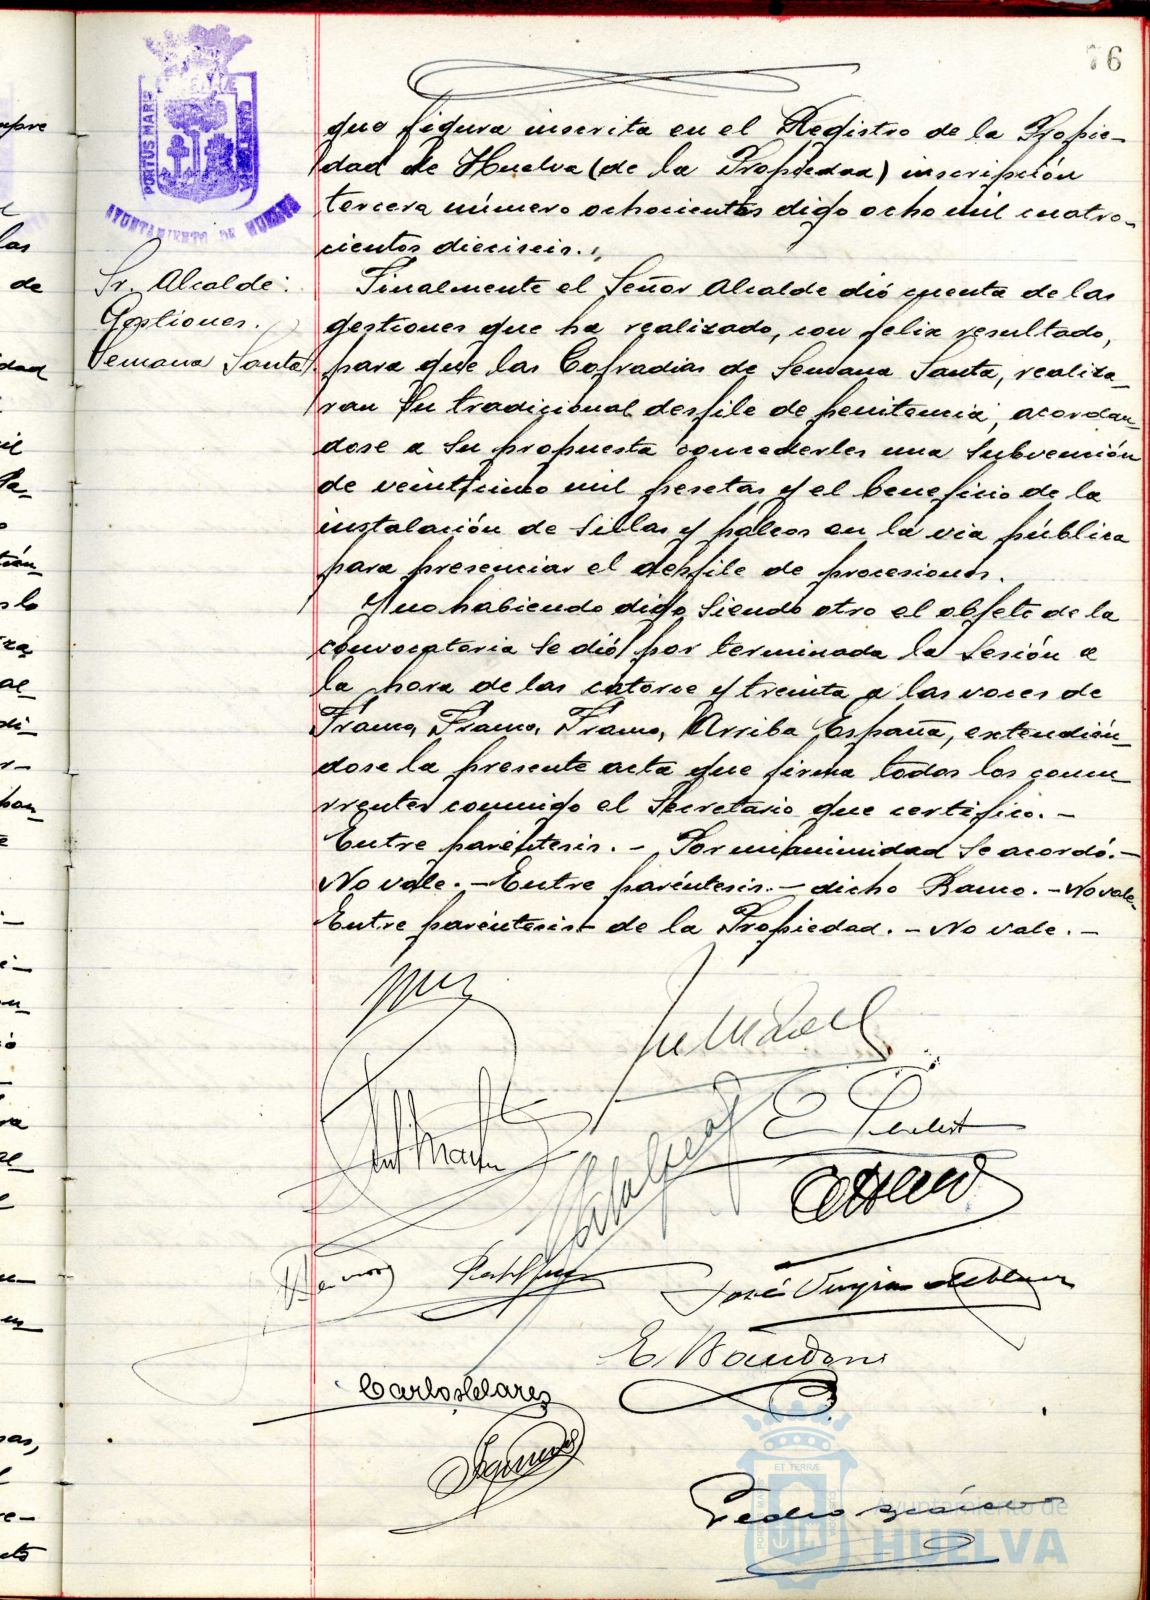 76
PORTUS MARIS
AYUNTAMIENTO DE HUELVA
que figura inscrita en el Registro de la Propie-
dad de Huelva (de la Propiedad) inscripción
tercera número ochocientos digo ocho mil cuatro-
cientos dieciseis.
Sr. Alcalde:
Gestiones.
Semana Santa
Finalmente el Señor Alcalde dió cuenta de las
gestiones que ha realizado, con feliz resultado,
para que las Cofradias de Semana Santa, realiza-
ran su tradicional desfile de penitencia, acordan-
dose a su propuesta concederles una subvención
de veinticinco mil pesetas y el beneficio de la
instalación de sillas y palcos en la via pública
para presenciar el desfile de procesiones.
Y no habiendo digo siendo otro el objeto de la
convocatoria se dió por terminada la sesión a
la hora de las catorce y treinta a las voces de
Franco, Franco, Franco, Arriba España, extendién-
dose la presente acta que firma todos los concu-
rrentes conmigo el Secretario que certifico. -
Entre paréntesis. - Por unanimidad se acordó. -
No vale. - Entre paréntesis. - dicho Ramo. - No vale-
Entre paréntesis - de la Propiedad. - No vale. -
José
E
Carlos
Pedro
ET TERRÆ
Ayuntamiento de
HUELVA